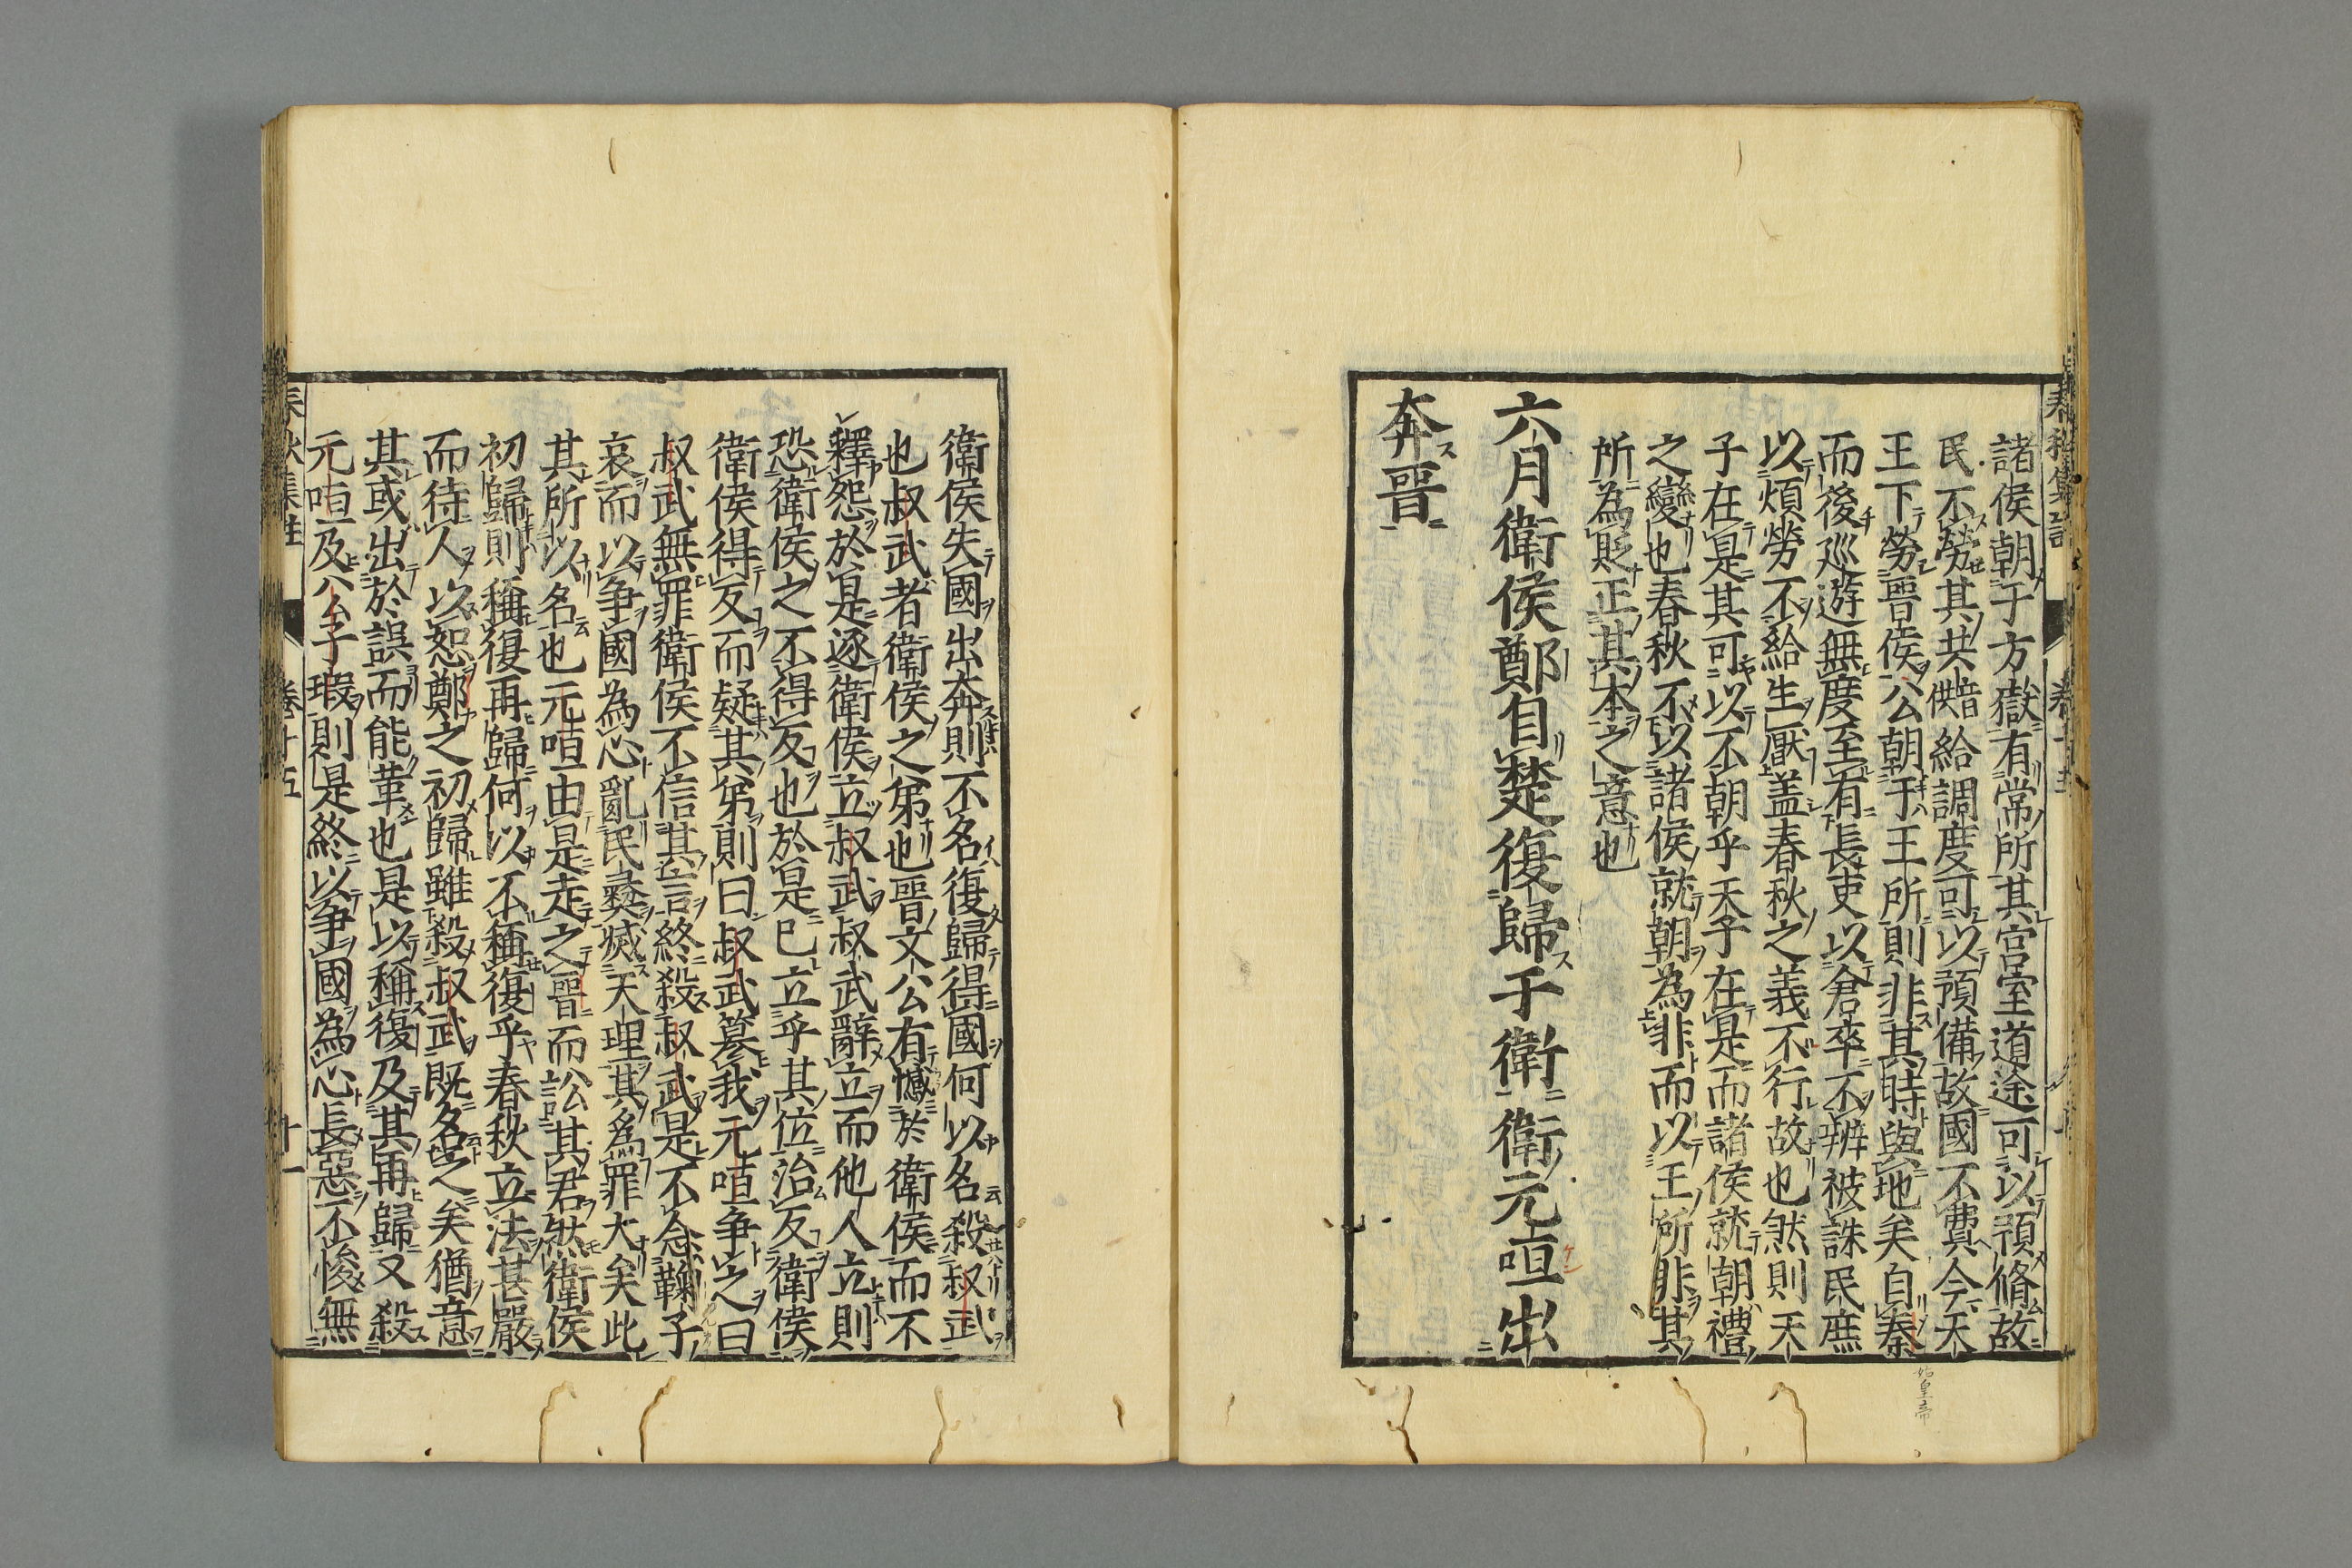 諸侯朝于方嶽有常所其宮室道途可以預脩故
民不勞其共音供給調度可以預備故國不費今天
王下勞晉侯公朝于王所則非其時與地矣自秦
而後巡遊無度至有長吏以倉卒不辨被誅民庶
以煩勞不給生厭盖春秋之義不行故也然則天
子在是其可以不朝乎天子在是而諸侯就朝禮
之變也春秋不以諸侯就朝為非而以王所非其
所為貶正其本之意也
六月衛侯鄭自楚復歸于衛衛元咺出
奔晉
始皇帝
衛侯失國出奔則不名復歸得國何以名殺叔武
也叔武者衛侯之弟也晉文公有憾於衛侯而不
釋怨於是逐衛侯立叔武叔武辭立而他人立則
恐衛侯之不得反也於是已立乎其位治反衛侯
衛侯得反而疑其弟則曰叔武簒我元咺争之曰
叔武無罪衛侯不信其言終殺叔武是不念鞠子
哀而以争國為心亂民彝滅天理其為罪大矣此
其所以名也元咺由是走之晉而訟其君然衛侯
初歸則稱復再歸何以不稱復乎春秋立法甚嚴
而待人以恕鄭之初歸雖殺叔武既名之矣猶意
其或出於誤而能革也是以稱復及其再歸又殺
元咺及公子瑕則是終以争國為心長惡不悛無
春秋集註 卷十五 十一